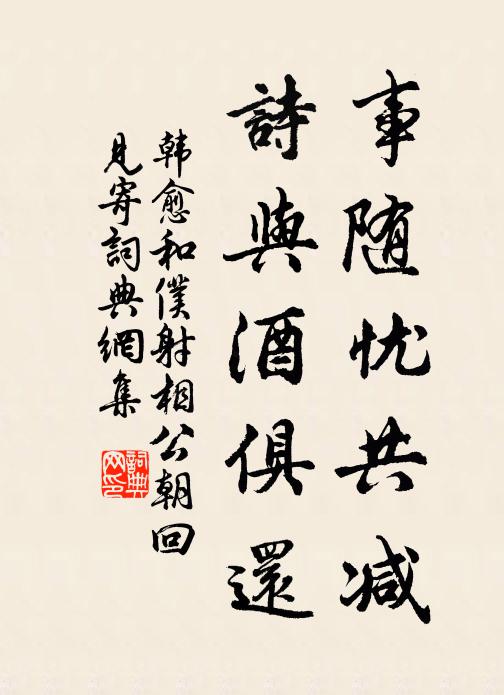 事随忧共减
詩與酒俱還
韩愈和僕射相公朝回
見寄詞典網集
詞典
网印